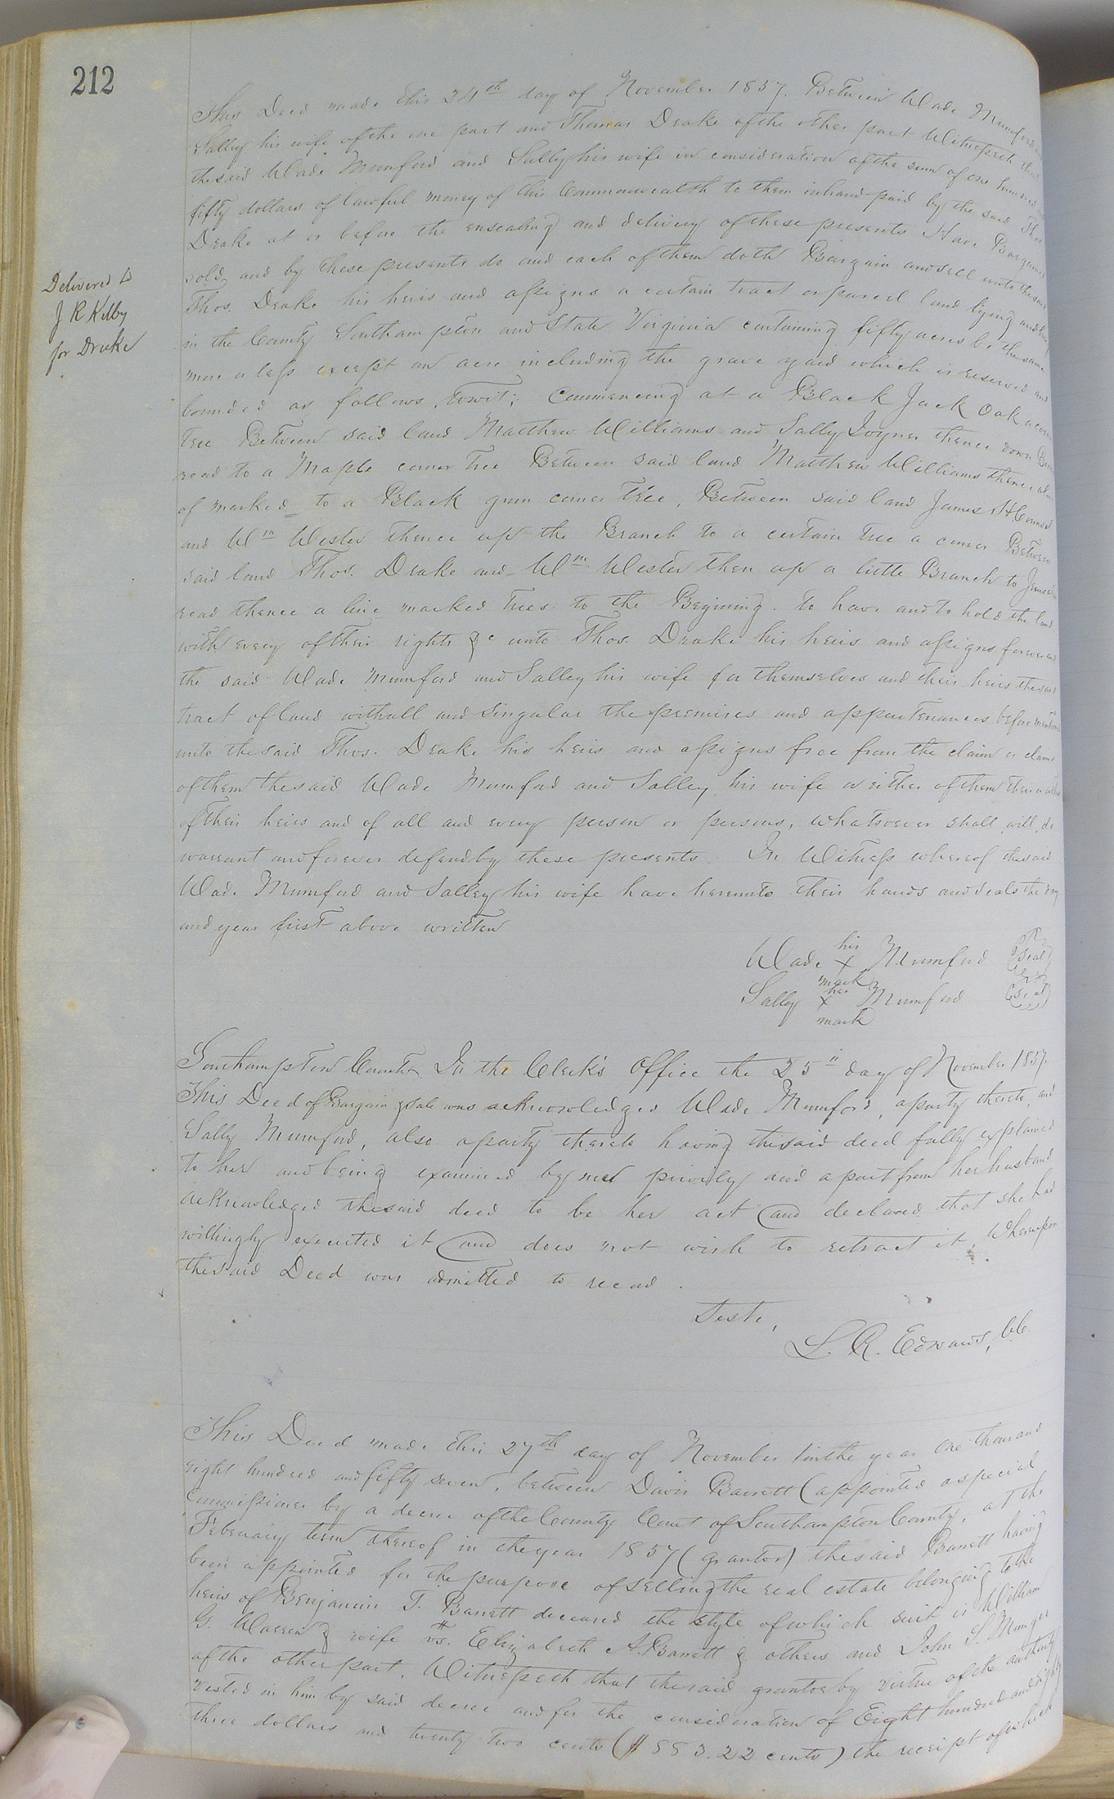 212
This Deed made this 24th day of November 1857. Between Wade Mumford
Sally his wife of the one part and Thomas Drake of the other part Witnesseth that
the said Wade Mumford and Sally his wife in consideration of the sum of one hundred
fifty dollars of lawful money of this Commonwealth to them inhand paid by the said Thos
Drake at or before the ensealing and delivery of these presents Have Bargained
sold, and by these presents do and each of them doth Bargain and sell unto the said
Delivered to
J R Kilby
for Drake
Thos. Drake his heirs and assigns a certain tract or parcel land lying and
in the County Southampton and State Virginia containing fifty acres be the same
more or less except an acre including the grave yard which is reserved and
bounded as follows, towit; Commencing at a Black Jack Oak a corner
tree Between said land Matthew Williams and Sally Joyner thence down
road to a Maple corner tree Between said land Matthew Williams thence
of marked to a Black gum corner tree, Between said land James
and Wm Wester thence up the Branch to a certain tree a corner Between
said land Thos. Drake and Wm Wester then up a little Branch to
road thence a line marked trees to the Begining. To have and to hold the land
with every of their rights &c unto Thos Drake his heirs and assigns forever
the said Wade Mumford and Salley his wife for themselves and their heirs the said
tract of land withall and singular the premises and appurtenances before mentioned
unto the said Thos. Drake his heirs and assigns free from the claim or claims
of them the said Wade Mumford and Salley his wife or either of them their or either
of their heirs and of all and every person or persons, whatsoever shall, will, do
warrant and forever defend by these presents. In Witness whereof the said
Wade Mumford and Salley his wife have hereunto their hands and seals the day
and year first above written
Wade his X mark Mumford (Seal)
Sally her X mark Mumford (Seal)
Southampton County In the Clerk's Office the 25th day of November 1857.
This Deed of Bargain & sale was acknowledged Wade Mumford, a party thereto, and
Sally Mumford, also a party thereto having the said deed fully explained
to her and being examined by me privily and apart from her husband
acknowledged the said deed to be her act and declared that she had
willingly executed it and does not wish to retract it. Whereupon
the said Deed was admitted to record.
Teste,
L. R. Edwards, CC
This Deed made this 27th day of November in the year one thousand
eight hundred and fifty seven, between Davis Barrett (appointed a special
Commissioner by a decree of the County Court of Southampton County, at the
February term thereof in the year 1857 (grantor) the said Barrett having
been appointed for the purpose of selling the real estate belonging to the
heirs of Benjamin T. Barrett deceased the style of which suit is William
G. Warren & wife vs. Elizabeth A. Barrett & others and John S. Munger
of the other part. Witnesseth that the said grantor by virtue of the authority
vested in him by said decree and for the consideration of Eight hundred and eighty
three dollars and twenty two cents ($883.22 cents) the receipt of which